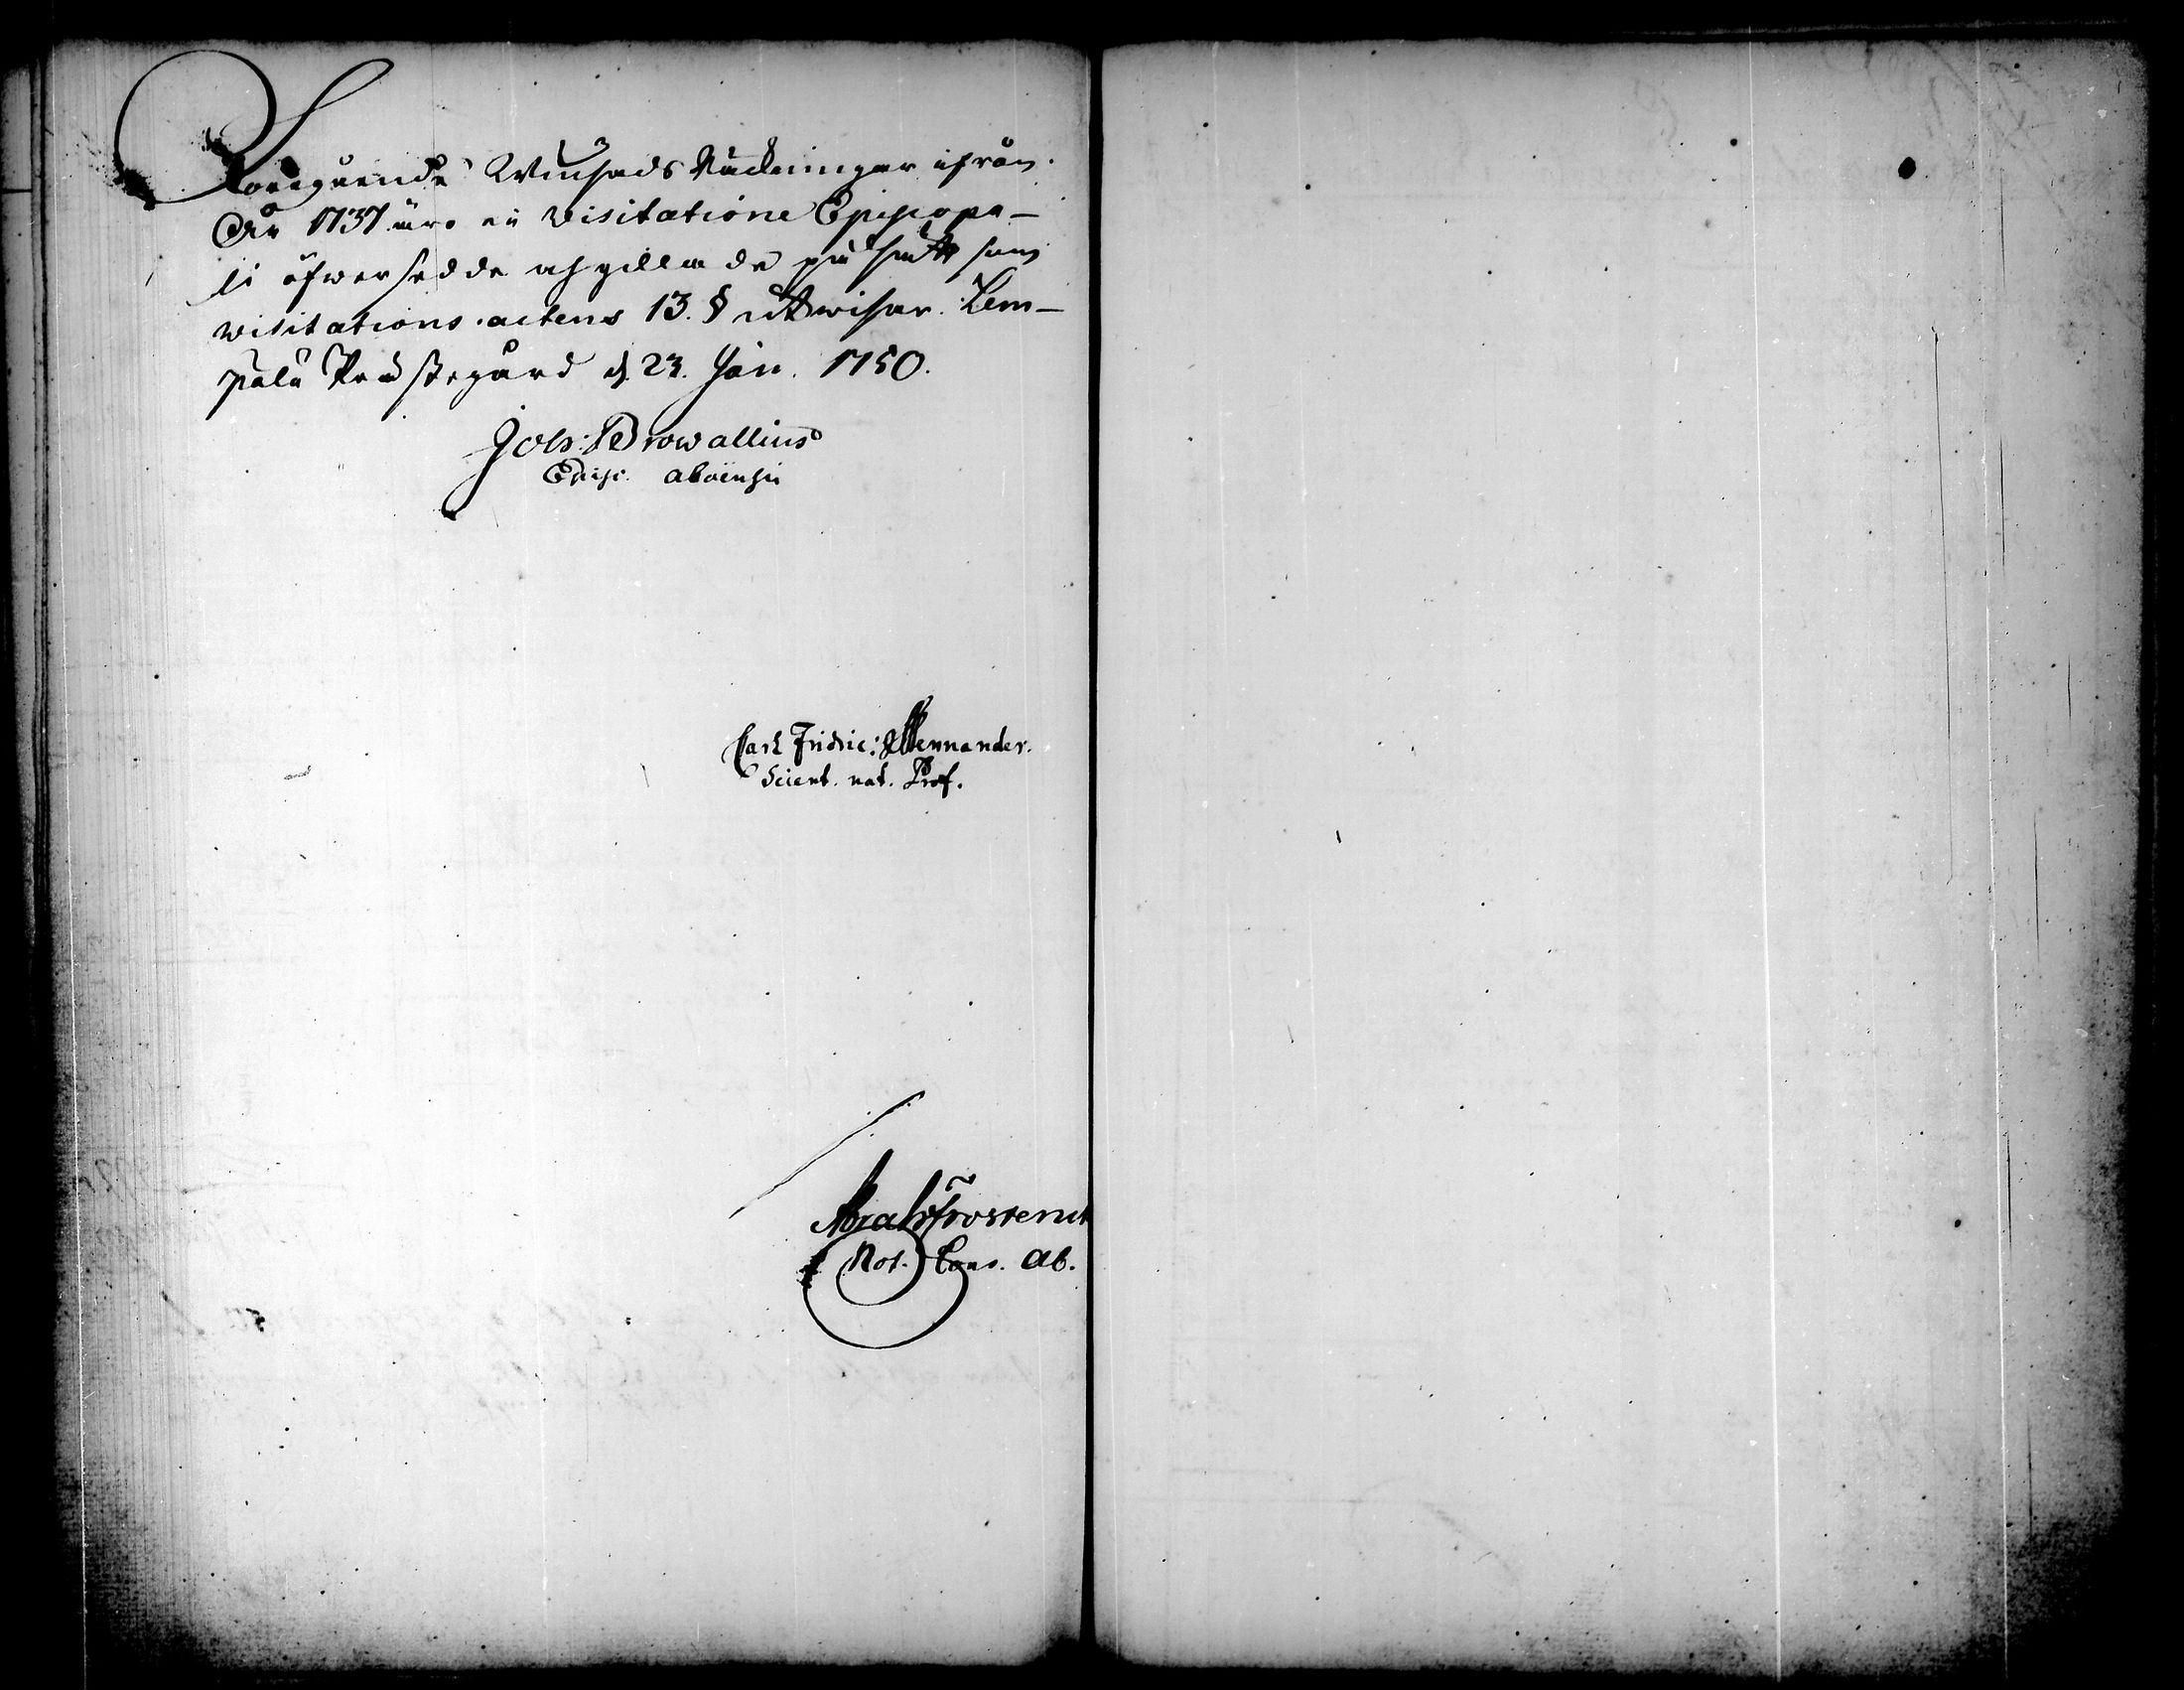 Föregående Winsads Räckningar ifrån
År 1737 äro in Visitatione Episcopa-
li öfwersedde och gillade på sätt som
Visitations actens 13. § utwisar. Lem-
pälä Prästegård d. 23. Jan. 1750.
Joh: Browallius
Episc. Aboensis
Carl Fridric: Mennander.
Scient. nat. Prof.
Abrah Frosterus
Not. Cons. Ab.